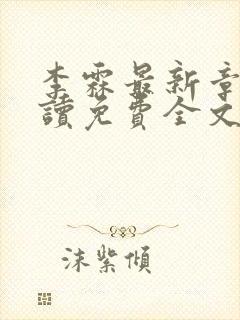 李霖最新章
讀免費全文
沫紫傾